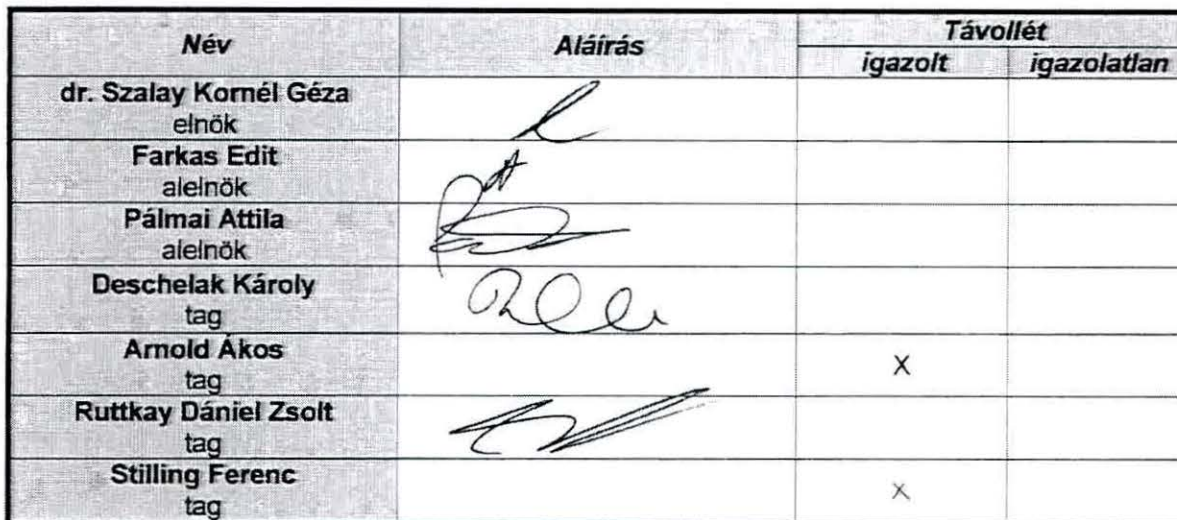 Név Aláírás Távollét
igazolt igazolatlan
dr. Szalay Kornél Géza
elnök
Farkas Edit
alelnök
Pálmai Attila
alelnök
Deschelak Károly
tag
Arnold Ákos
tag X
Ruttkay Dániel Zsolt
tag
Stilling Ferenc
tag X